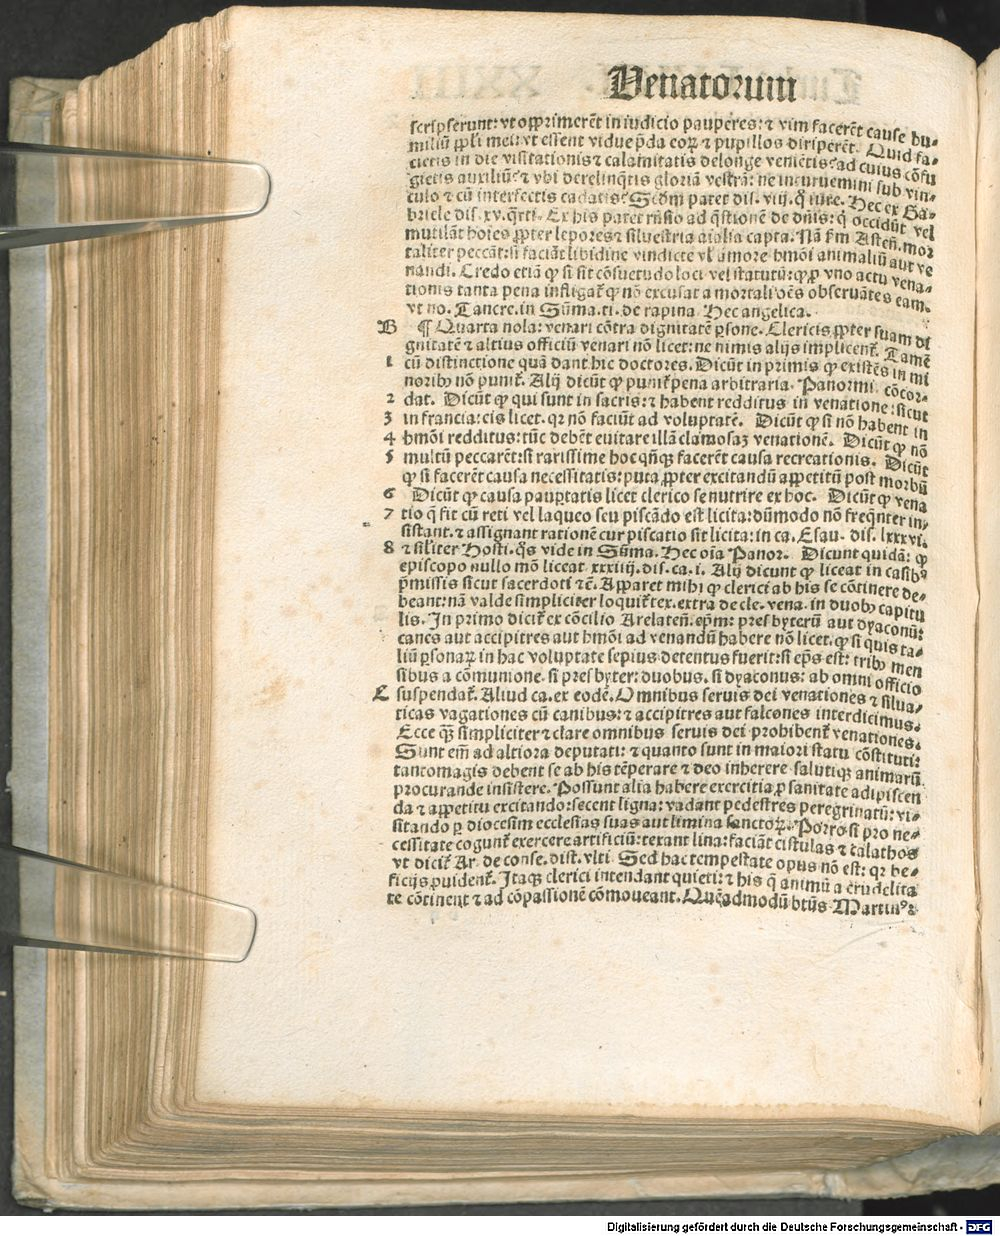 Venatorum
scripserunt: vt opprimerēt in iudicio pauperes: ⁊ vim facerēt cause hu⸗
miliū ppli mei: vt essent vidue p̄da eoꝝ ⁊ pupillos diriperēt. Quid fa⸗
cietis in die visitationis ⁊ calamitatis delonge veniētis: ad cuius cōfu
gietis auxiliū: ⁊ vbi derelinq̄tis gloriā vestrā: ne incuruemini sub vin⸗
culo ⁊ cū interfectis cadatis: Scdm patet dis. viij. q̄ iure. Hec ex Ga⸗
briele dis. xv. q̄rti. Ex his patet rn̄sio ad q̄stionē de dn̄is: q̄ occidūt vel
mutilāt hoies ꝓpter lepores ⁊ siluestria aīalia capta. Nā fm Asteñ. mor
taliter peccāt: si faciāt libidine vindicte vl amore hmōi animaliū aut ve
nandi. Credo etiā ꝙ si sit cōsuetudo loci vel statutū: ꝙ ꝓ vno actu vena⸗
tionis tanta pena infligat̄ ꝙ nō excusat a mortali oēs obseruātes eam.
vt no. Tancre. in Sūma. ti. de rapina. Hec angelica.
B ¶ Quarta nola: venari cōtra dignitatē ꝑsone. Clericis ꝓpter suam di
gnitatē ⁊ altius officiū venari nō licet: ne nimis alijs implicent̄. Tamē
1 cū distinctione quā dant hic doctores. Dicūt in primis ꝙ existēs in mi
noribꝰ nō punit̄. Alij dicūt ꝙ punit̄ pena arbitraria. Panormi. cōcor⸗
2 dat. Dicūt ꝙ qui sunt in sacris: ⁊ habent redditus in venatione: sicut
3 in francia: eis licet. qꝛ nō faciūt ad voluptatē. Dicūt ꝙ si nō habent in
4 hmōi redditus: tūc debēt euitare illā clamosaꝫ venationē. Dicūt ꝙ nō
5 multū peccarēt: si rarissime hoc qn̄qꝫ facerēt causa recreationis. Dicūt
ꝙ si facerēt causa necessitatis: puta ꝓpter excitandū appetitū post morbū
6 Dicūt ꝙ causa paupertatis licet clerico se nutrire ex hoc. Dicūt ꝙ vena
7 tio q̄ fit cū reti vel laqueo seu piscādo est licita: dūmodo nō freq̄nter in⸗
sistant. ⁊ assignant rationē cur piscatio sit licita: in ca. Esau. dis. lxxxvi.
8 ⁊ siliter Hosti. q̄s vide in Sūma. Hec oīa Panor. Dicunt quidā: ꝙ
episcopo nullo mō liceat xxxiiij. dis. ca. i. Alij dicunt ꝙ liceat in casibꝰ
p̄missis sicut sacerdoti ⁊c̄. Apparet mihi ꝙ clerici ab his se cōtinere de⸗
beant: nā valde simpliciter loquit̄ tex. extra de cle. vena. in duobꝰ capitu
lis. In primo dicit̄ ex cōcilio Arelateñ. ep̄m: presbyterū aut dyaconū:
canes aut accipitres aut hmōi ad venandū habere nō licet. ꝙ si quis ta⸗
liū ꝑsonaꝝ in hac voluptate sepius detentus fuerit: si ep̄s est: tribꝰ men
sibus a cōmunione. si presbyter: duobus. si dyaconus: ab omni officio
C suspendat̄. Aliud ca. ex eodē. Omnibus seruis dei venationes ⁊ silua⸗
ticas vagationes cū canibus: ⁊ accipitres aut falcones interdicimus.
Ecce qꝫ simpliciter ⁊ clare omnibus seruis dei prohibent̄ venationes.
Sunt em̄ ad altiora deputati: ⁊ quanto sunt in maiori statu cōstituti:
tantomagis debent se ab his tēperare ⁊ deo inherere salutiqꝫ animarū
procurande insistere. Possunt alia habere exercitia ꝓ sanitate adipiscen
da ⁊ appetitu excitando: secent ligna: vadant pedestres peregrinatū: vi⸗
sitando ꝑ diocesim ecclesias suas aut limina sanctoꝝ. Porro si pro ne⸗
cessitate cogunt̄ exercere artificiū: texant lina: faciāt cistulas ⁊ calathos
vt dicit̄ Ar. de conse. dist. vlti. Sed hac tempestate opus nō est: qꝛ be⸗
ficijs ꝓuident̄. Itaqꝫ clerici intendant quieti: ⁊ his q̄ animū a crudelita
te cōtinent ⁊ ad cōpassionē cōmoueant. Quēadmodū btūs Martinꝰ:
Digitalisierung gefördert durch die Deutsche Forschungsgemeinschaft - DFG